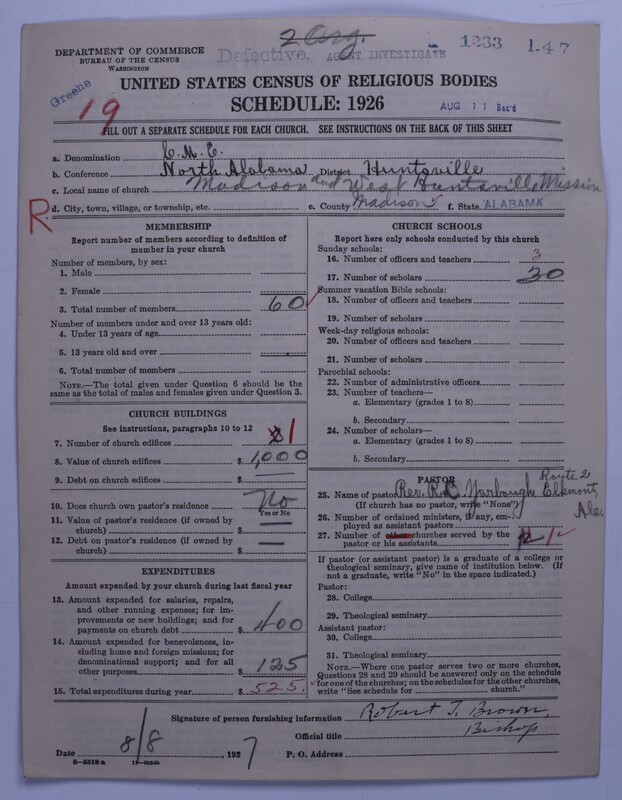 2 Org.
DEPARTMENT OF COMMERCE
BUREAU OF THE CENSUS
WASHINGTON
Defective. AGENT INVESTIGATE 1233 1-47
Greene
UNITED STATES CENSUS OF RELIGIOUS BODIES
SCHEDULE: 1926
AUG 11 Rec'd
19
FILL OUT A SEPARATE SCHEDULE FOR EACH CHURCH. SEE INSTRUCTIONS ON THE BACK OF THIS SHEET
a. Denomination C.M.E.
b. Conference North Alabama District Huntsville
c. Local name of church Madison and West Huntsville Mission
R d. City, town, village, or township, etc. e. County Madison f. State ALABAMA
MEMBERSHIP
Report number of members according to definition of
member in your church
Number of members, by sex:
1. Male
2. Female
3. Total number of members 60
Number of members under and over 13 years old:
4. Under 13 years of age
5. 13 years old and over
6. Total number of members
NOTE.—The total given under Question 6 should be
same as the total of males and females given under Question 3.
CHURCH BUILDINGS
See instructions, paragraphs 10 to 12
7. Number of church edifices 1
8. Value of church edifices $ 1,000
9. Debt on church edifices $
10. Does church own pastor's residence No
Yes or No
11. Value of pastor's residence (if owned by
church) $ —
12. Debt on pastor's residence (if owned by
church) $ —
EXPENDITURES
Amount expended by your church during last fiscal year
13. Amount expended for salaries, repairs,
and other running expenses; for im-
provements or new buildings; and for
payments on church debt $ 400
14. Amount expended for benevolences, in-
cluding home and foreign missions; for
denominational support; and for all
other purposes $ 125
15. Total expenditures during year $ 525.
CHURCH SCHOOLS
Report here only schools conducted by this church
Sunday schools:
16. Number of officers and teachers 3
17. Number of scholars 30
Summer vacation Bible schools:
18. Number of officers and teachers
19. Number of scholars
Week-day religious schools:
20. Number of officers and teachers
21. Number of scholars
Parochial schools:
22. Number of administrative officers
23. Number of teachers—
a. Elementary (grades 1 to 8)
b. Secondary
24. Number of scholars—
a. Elementary (grades 1 to 8)
b. Secondary
PASTOR
Route 2
25. Name of pastor Rev. R.L. Yarbough Elkmont,
(If church has no pastor, write "None") Ala.
26. Number of ordained ministers, if any, em-
ployed as assistant pastors
27. Number of other churches served by the
pastor or his assistants 1
If pastor (or assistant pastor) is a graduate of a college or
theological seminary, give name of institution below. (If
not a graduate, write "No" in the space indicated.)
Pastor:
28. College
29. Theological seminary
Assistant pastor:
30. College
31. Theological seminary
NOTE.—Where one pastor serves two or more churches,
Questions 28 and 29 should be answered only on the schedule
for one of the churches; on the schedules for the other churches,
write "See schedule for church."
Signature of person furnishing information Robert T. Brown,
Official title Bishop
Date 8/8, 1927 P. O. Address
8—5518 a